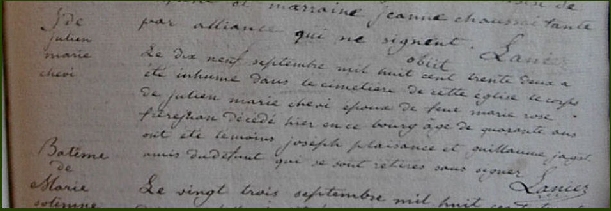 et marraine jeanne chaussei tante
par alliance qui ne signent. Lanier
S de
julien
marie
chevi
obiit
Le dix neuf septembre mil huit cent trente deux a
été inhumé dans le cimetière de cette église le corps
de julien marie chevi epoux de feue marie rose
décédé hier en ce bourg âge de quarante ans
ont été temoins joseph plaisance et guillaume jaget
amis du defunt qui se sont retires sans signer Lanier
Batême
de
Marie
Le vingt trois septembre mil huit cent